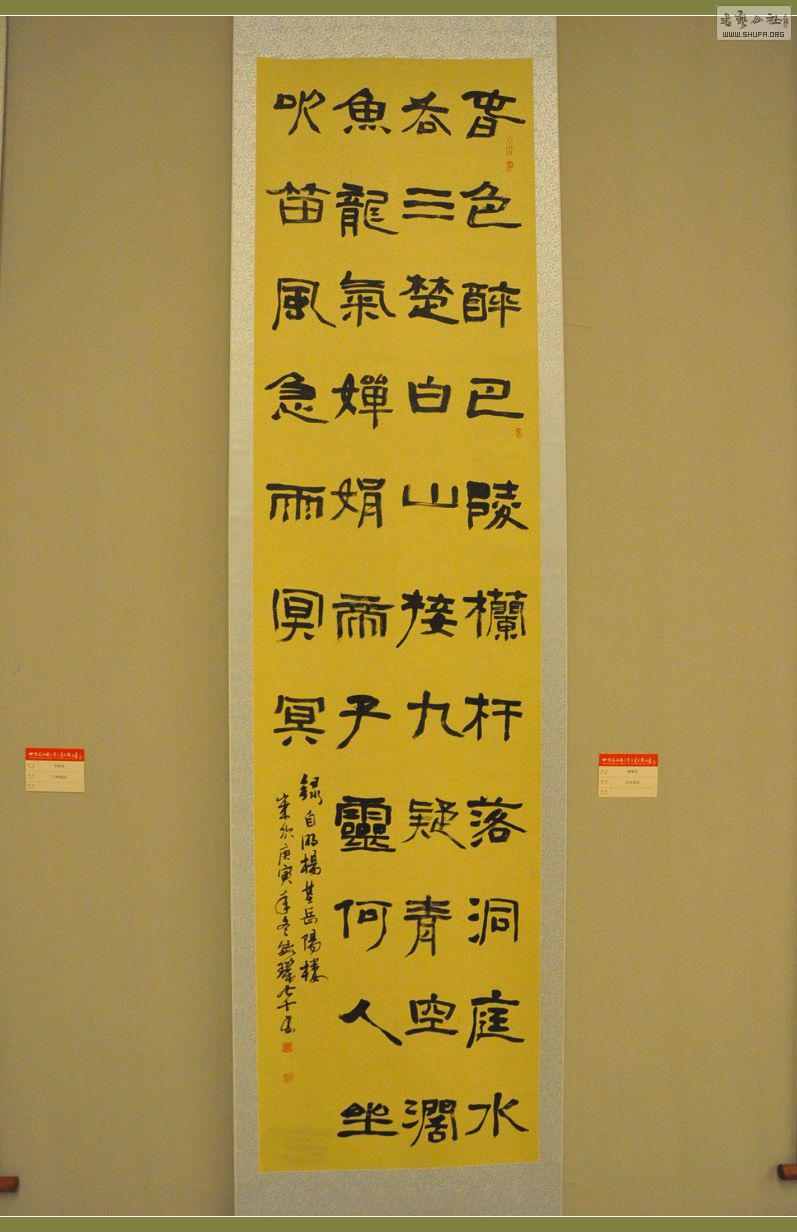 春色醉巴陵欄杆落洞庭水
吞三楚白山接九疑青空濶
魚龍氣嬋娟帝子靈何人坐
吹笛風急雨冥冥
錄自明楊基岳陽樓
歲次庚寅年冬
WWW.SHUFA.ORG